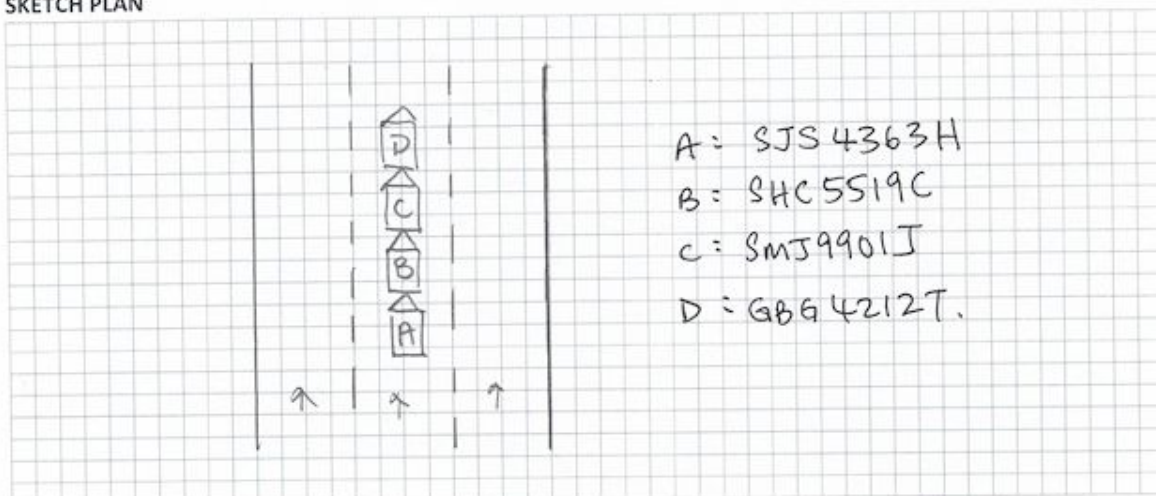 SKETCH PLAN
D
C
B
A
A: SJS 4363H
B: SHC 5519C
C: SMJ9901J
D: GBG 4212T.